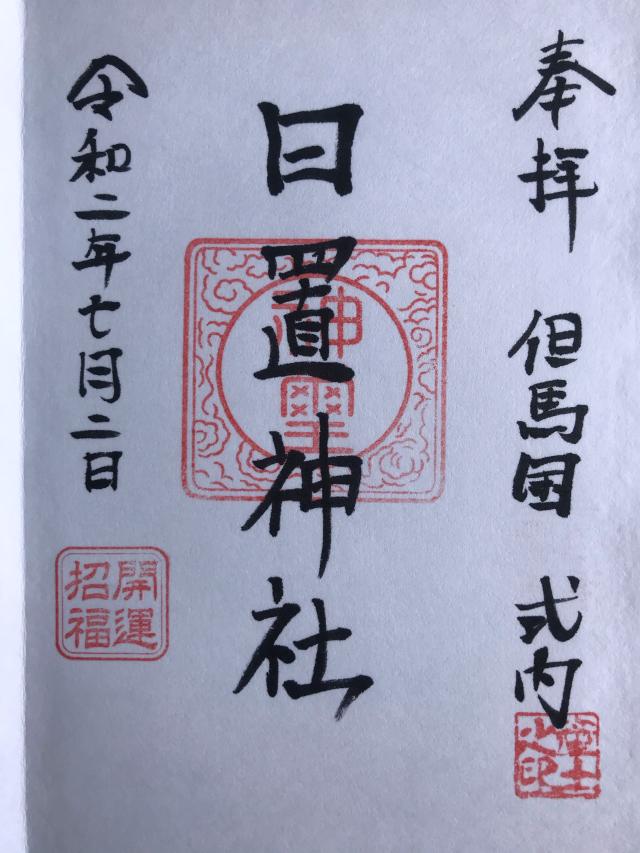 奉拝 但馬国 式内
日置神社
神璽
令和二年七月二日
開運
招福